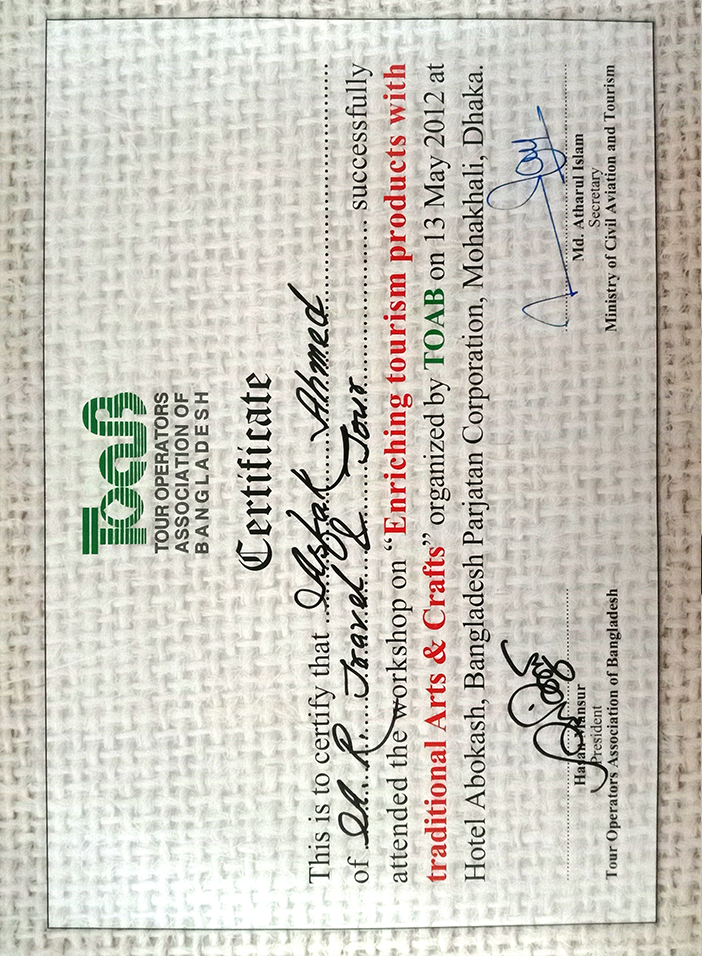 Toab
TOUR OPERATORS
ASSOCIATION OF
BANGLADESH
Certificate
This is to certify that Ashfak Ahmed
of M. R. Travel & Tour successfully
attended the workshop on “Enriching tourism products with
traditional Arts & Crafts” organized by TOAB on 13 May 2012 at
Hotel Abokash, Bangladesh Parjatan Corporation, Mohakhali, Dhaka.
Hasan Mansur
President
Tour Operators Association of Bangladesh
Md. Atharul Islam
Secretary
Ministry of Civil Aviation and Tourism